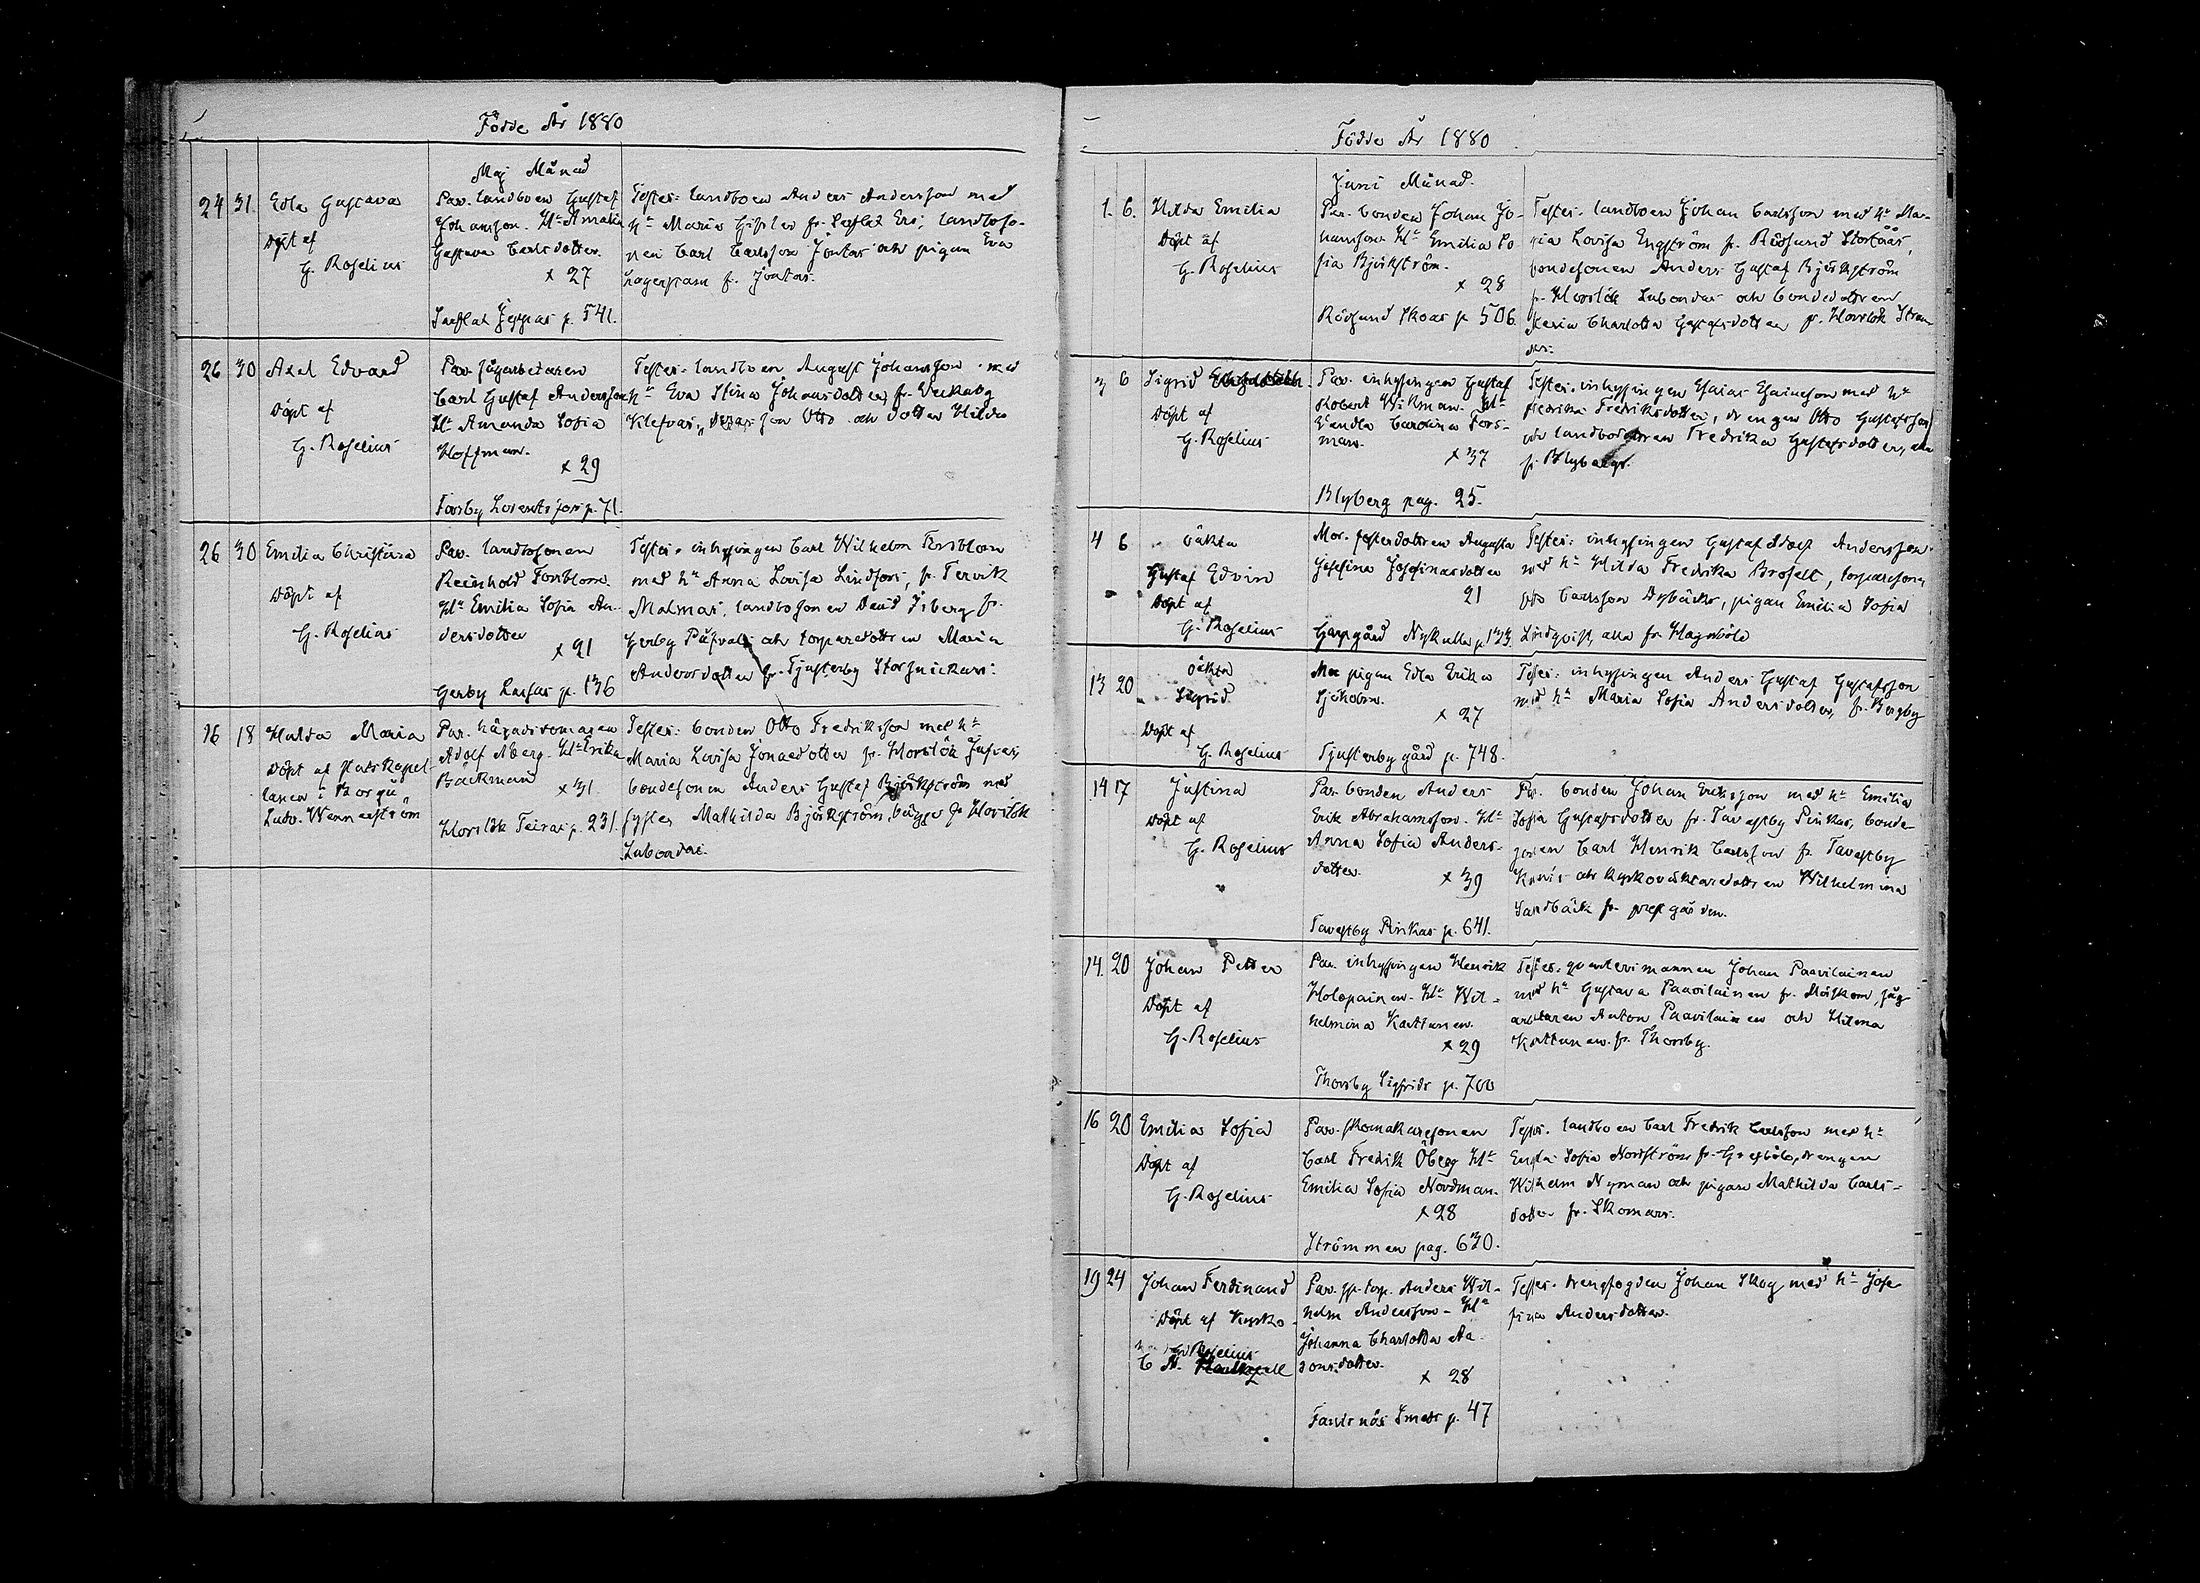 Födde År 1880
Maj Månad
24 31. Edla Gustava
Döpt af
G. Roselius
Par. landboen Gustaf
Johansson. H:u Amalia
Gustava Carlsdotter.
x 27
Jeppas p. 541.
Testes: landboen Anders Andersson med
h:u Maria fr. Eri; landboso-
nen Carl Carlsson Jontas och pigan Eva
Lagerstam fr. Jontas.
26 30 Axel Edvard
Döpt af
G. Roselius
Par. sågarbetaren
Carl Gustaf Andersson
H:u Amanda Sofia
Hoffman.
x 29
Forsby Lorents p. 71.
Testes: landboen August Johansson med
h:u Eva Stina Johansdotter fr.
Klefvas, deras son Otto och dotter Hilda
26 30 Emilia Christina
Döpt af
G. Roselius
Par. landbosonen
Reinhold Forsblom.
H:u Emilia Sofia An-
dersdotter
x 21
Gerby Lassas p. 136
Testes: inhysingen Carl Wilhelm Forsblom
med h:u Anna Lovisa Lindfors, fr. Tervik
Malmas, landbosonen David Isberg fr.
Gerby Påfvals och torparedottren Maria
Andersdotter fr. Tjusterby Storsnickars.
16 18 Hulda Maria
Döpt af Platskapel-
lanen i Borgå
Ludv. Wennerström
Par. häradsdomaren
Adolf Åberg. H:u Erika
Bäckman
x 31
Horslök Teiras p. 231.
Testes: bonden Otto Fredriksson med h:u
Maria Lovisa Jonaedotter fr. Horslök Jusvas,
bondesonen Anders Gustaf Björkström med
syster Mathilda Björkström, bägge fr Horslök
Labondas.
Födde År 1880
Juni Månad.
1. 6. Hilda Emilia
Döpt af
G. Roselius
Par. bonden Johan Jo-
hansson H:u Emilia So
fia Björkström.
x 28
Rödsund Skoas p 506.
Testes. landboen Johan Carlsson med h:u Ma-
ria Lovisa Engström fr. Rödsund
bondesonen Anders Gustaf Björkström
fr. Horslök Labondas och bondedottren
Maria Charlotta Gustafsdotter fr. Horslök Stran
des.
3 6 Sigrid
Döpt af
G. Roselius
Par. inhysingen Gustaf
Robert Wikman. H:u
Wendla Carolina Fors-
man.
x 37
Blyberg pag. 25.
Testes. inhysingen Esaias Esaiasson med h:u
Fredrika Fredriksdotter, drengen Otto Gustafsson
och landbodottren Fredrika Gustafsdotter, alla
fr. Blyberg.
4 6 oäkta
Gustaf Edvin
Döpt af
G. Roselius
Mor. fosterdottren Augusta
Josefina Josefinasdotter
21
Garpgård Nykulla p 133.
Testes: inhysingen Gustaf Adolf Andersson
med h:u Hilda Fredrika Brofelt, torparesonen
Otto Carlsson Nybäcks, pigan Emilia Sofia
Lindqvist, alla fr. Hagnböle
13 20 oäkta
Sigrid
Döpt af
G. Roselius
Mor pigan Edla Erika
Sjöholm.
x 27
Tjusterby gård p. 748.
Testes: inhysingen Anders Gustaf Gustafsson
med h:u Maria Sofia Andersdotter, fr. Bergby
14 17 Justina
Döpt af
G. Roselius
Par. bonden Anders
Erik Abrahamsson. H:u
Anna Sofia Anders-
dotter.
x 39
Tavastby Pinkas p. 641.
Par. bonden Johan Eriksson med h:u Emilia
Sofia Gustafsdotter fr. Tavastby Pinkas, bonde-
sonen Carl Henrik Carlsson fr. Tavastby
och kyrkoväktaredottren Wilhelmina
Sandbäck fr. prestgården.
14. 20 Johan Petter
Döpt af
G. Roselius
Par. inhysingen Henrik
Holopainen. H:u Wil-
helmina Karttunen.
x 29
Thorsby Sigfrids p. 700
Testes. qvartersmannen Johan Paavilainen
med h:u Gustava Paavilainen fr. Måskom, såg
arbetaren Anton Paavilainen och Hilma
Karttunen fr. Thorsby.
16 20 Emilia Sofia
Döpt af
G. Roselius
Par. skomakaresonen
Carl Fredrik Öberg H:u
Emilia Sofia Nordman.
x 28
Strömmen pag. 630.
Testes. landboen Carl Fredrik Carlsson med h:u
Engla Sofia Nordström fr. Greggböle, drengen
Wilhelm Nyman och pigan Mathilda Carls-
dotter fr. Skomars.
19 24 Johan Ferdinand
Döpt af Kyrko-
Roselius
C A.
Par. sp. torp. Anders Wil-
helm Andersson. H:u
Johanna Charlotta Aa
ronsdotter.
x 28
Fantsnäs Smeds p. 47
Testes. drengfogden Johan Skog med h:u Jose
fina Andersdotter.